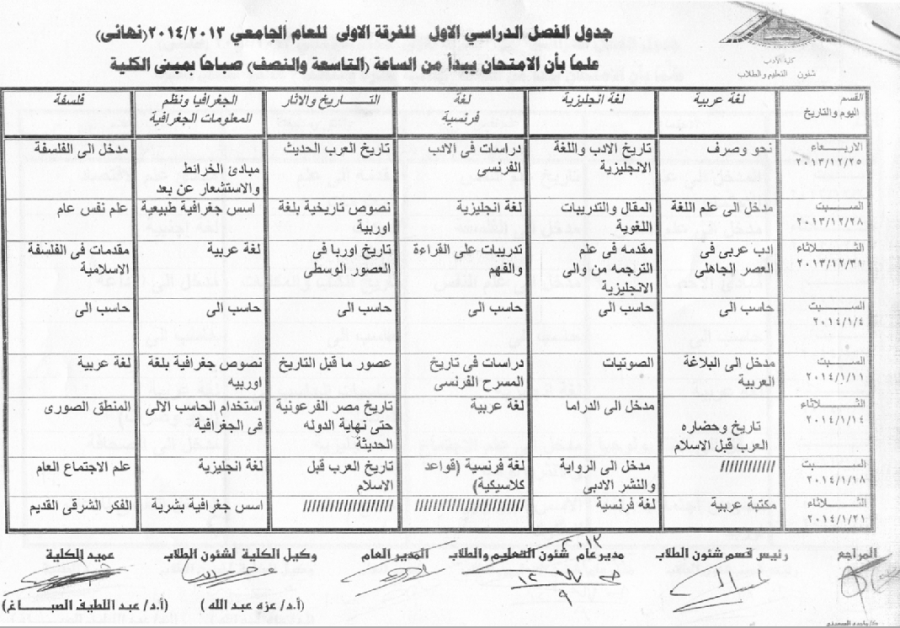 جدول الفصل الدراسي الاول للفرقة الاولى للعام الجامعي ٢٠١٤/٢٠١٣(نهائى)
علما بأن الامتحان يبدأ من الساعة (التاسعة والنصف) صباحاً بمبنى الكلية
كلية الآداب
شئون التعليم والطلاب
القسم اليوم والتاريخ | لغة عربية | لغة انجليزية | لغة فرنسية | التـــاريخ والاثار | الجغرافيا ونظم المعلومات الجغرافية | فلسفة
الاربعاء ٢٠١٣/١٢/٢٥ | نحو وصرف | تاريخ الادب واللغة الانجليزية | دراسات فى الادب الفرنسى | تاريخ العرب الحديث | مبادئ الخرائط والاستشعار عن بعد | مدخل الى الفلسفة
السبت ٢٠١٣/١٢/٢٨ | مدخل الى علم اللغة | المقال والتدريبات اللغوية | لغة انجليزية | نصوص تاريخية بلغة اوربية | اسس جغرافية طبيعية | علم نفس عام
الثلاثاء ٢٠١٣/١٢/٣١ | ادب عربى فى العصر الجاهلى | مقدمه فى علم الترجمه من والى الانجليزية | تدريبات على القراءة والفهم | تاريخ اوربا فى العصور الوسطى | لغة عربية | مقدمات فى الفلسفة الاسلامية
السبت ٢٠١٤/١/٤ | حاسب الى | حاسب الى | حاسب الى | حاسب الى | حاسب الى | حاسب الى
السبت ٢٠١٤/١/١١ | مدخل الى البلاغة العربية | الصوتيات | دراسات فى تاريخ المسرح الفرنسى | عصور ما قبل التاريخ | نصوص جغرافية بلغة اوربيه | لغة عربية
الثلاثاء ٢٠١٤/١/١٤ | تاريخ وحضاره العرب قبل الاسلام | مدخل الى الدراما | لغة عربية | تاريخ مصر الفرعونية حتى نهاية الدوله الحديثة | استخدام الحاسب الالى فى الجغرافية | المنطق الصورى
السبت ٢٠١٤/١/١٨ | /////////// | مدخل الى الرواية والنشر الادبى | لغة فرنسية (قواعد كلاسيكية) | تاريخ العرب قبل الاسلام | لغة انجليزية | علم الاجتماع العام
الثلاثاء ٢٠١٤/١/٢١ | مكتبة عربية | لغة فرنسية | ////////////////////// | ////////////////////// | اسس جغرافية بشرية | الفكر الشرقى القديم
المراجع رئيس قسم شئون الطلاب مدير عام شئون التعليم والطلاب المدير العام وكيل الكلية لشئون الطلاب عميد الكلية
(أ.د/ عزه عبد الله ) (أ.د/ عبد اللطيف الصبـــاغ)